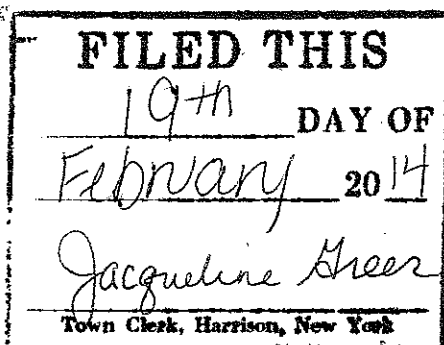 FILED THIS
19th DAY OF
February 2014
Jacqueline Greer
Town Clerk, Harrison, New York